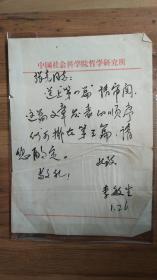 中国社会科学院哲学研究所
同志：
送上第八篇，请审阅，
这篇文章思考的顺序
何为排在第三篇，请
您酌定。
此致
敬礼，
李敏生
1.26